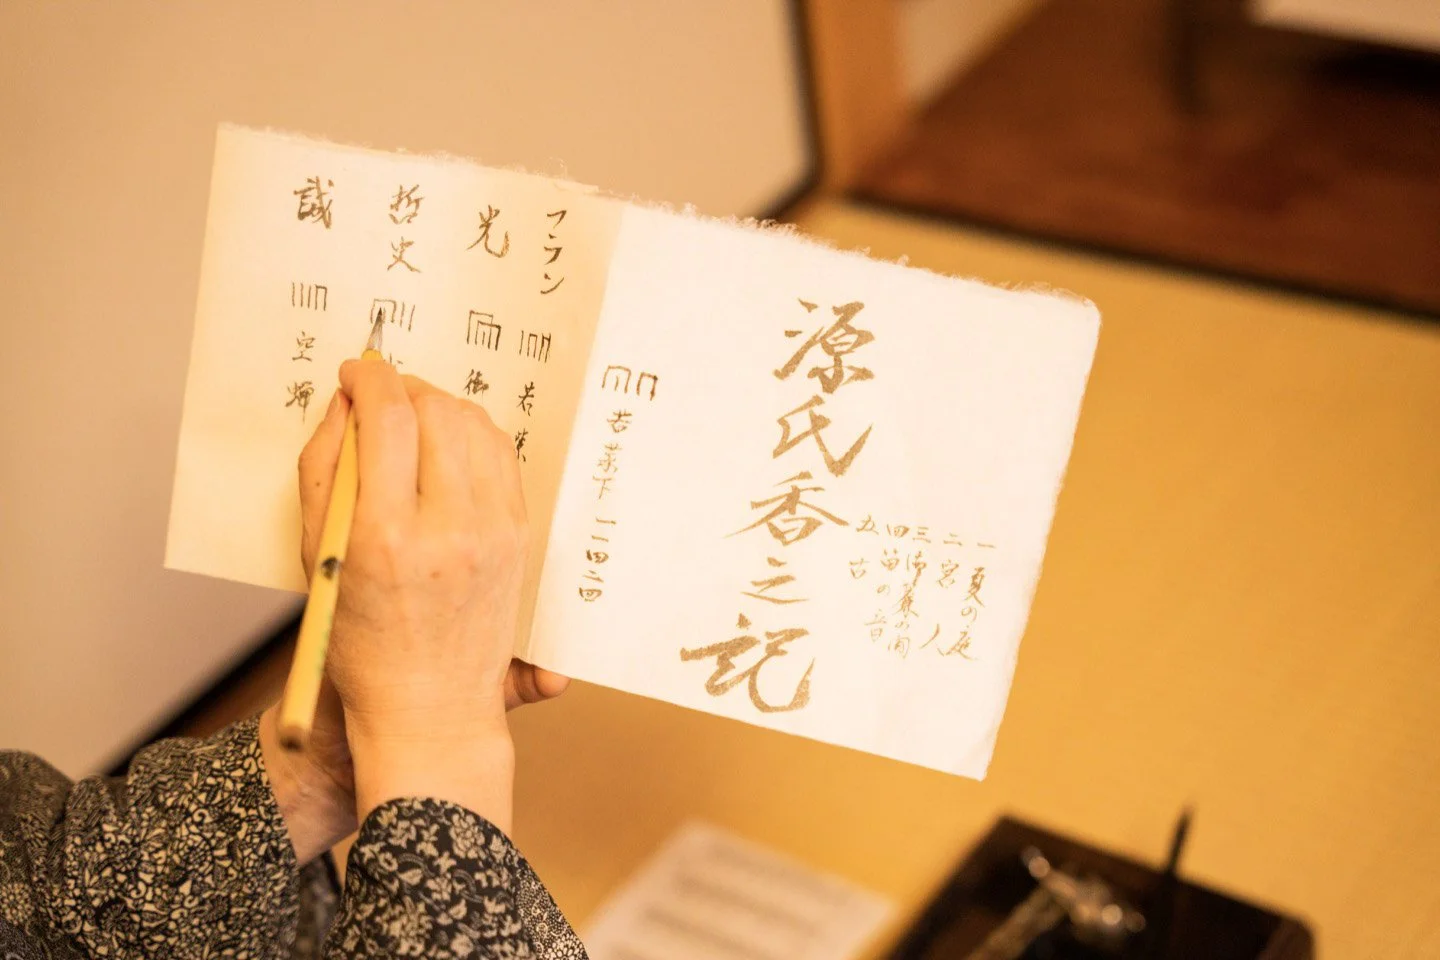 一 夏の庭
二 宮人
三 御簾の間
四 笛の音
五 古
源氏香之記
若菜下 一一四二四
フラン 若紫
光 御
哲史
誠 空蝉